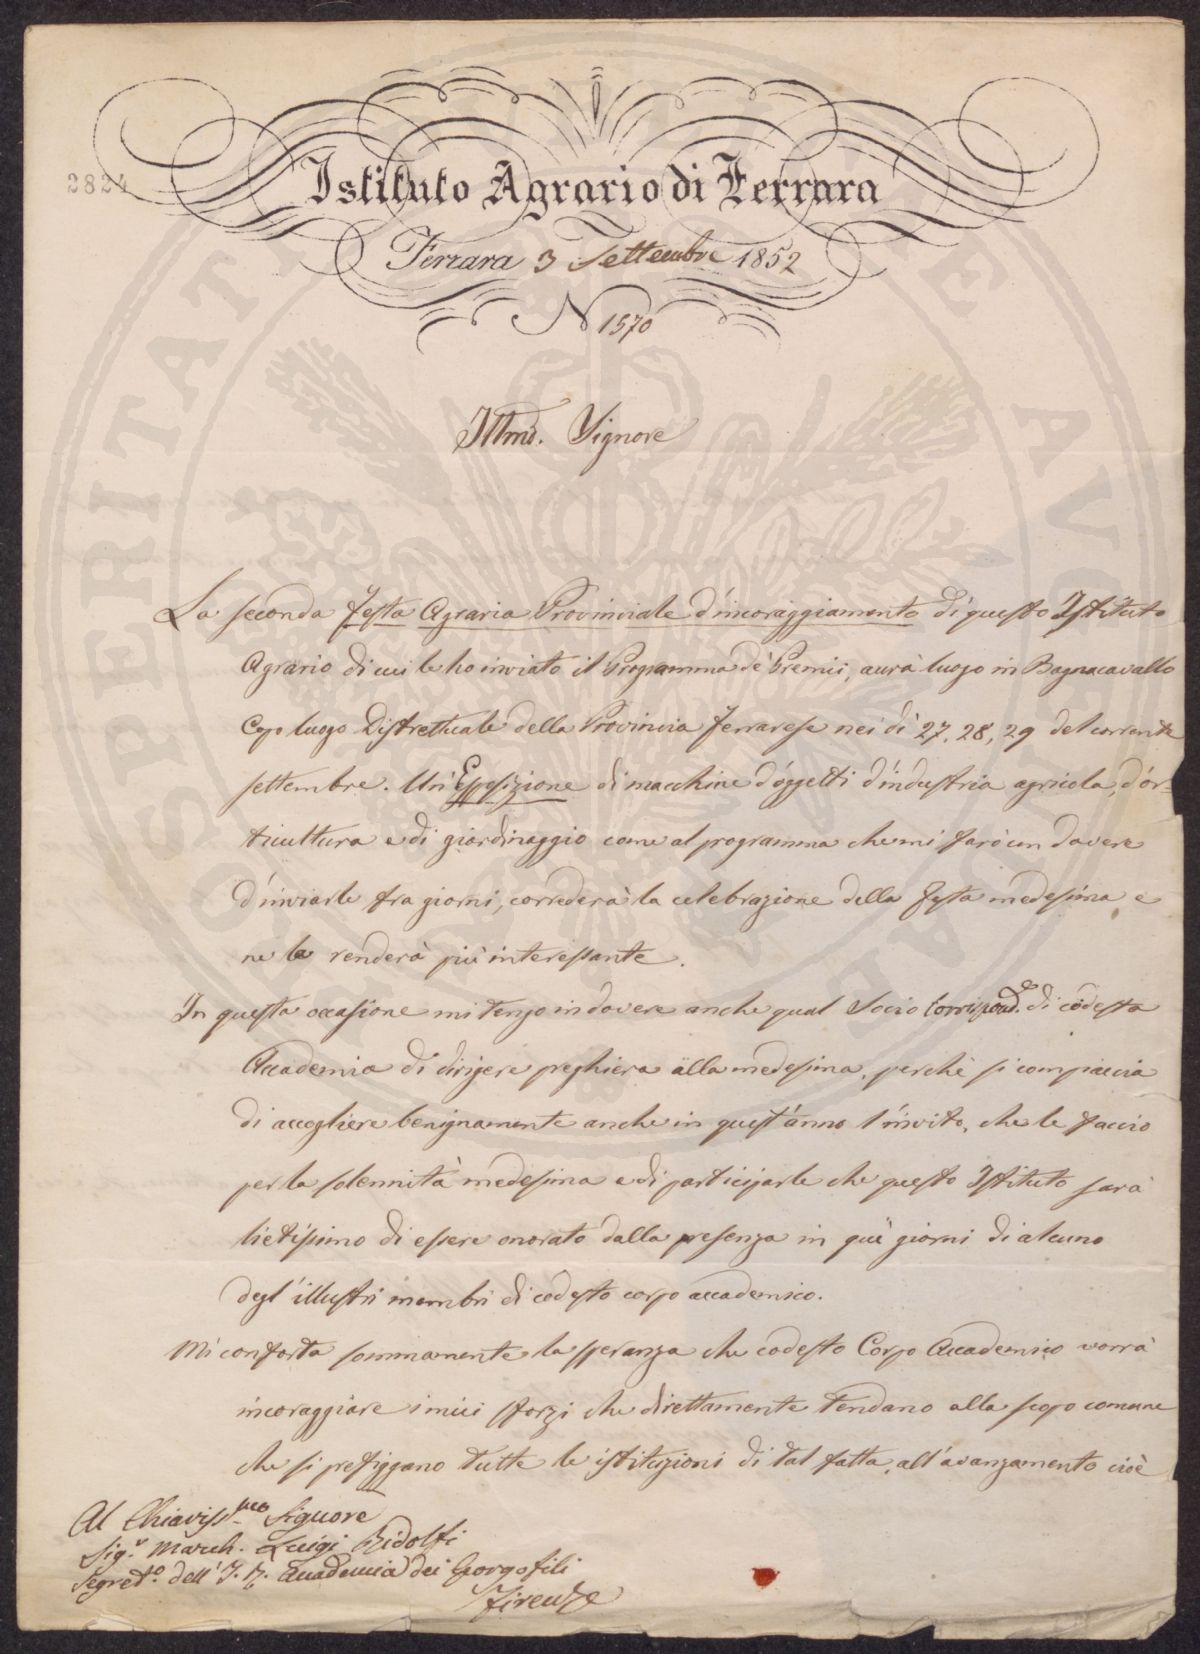 2824
Istituto Agrario di Ferrara
Ferrara 3 Settembre 1852
N 1570
Illmo. Signore
La seconda Festa Agraria Provinciale d'incoraggiamento di questo Istituto
Agrario di cui le ho inviato il Programma de' Premii, avrà luogo in Bagnacavallo
Capo luogo Distrettuale della Provincia Ferrarese nei dì 27, 28, 29 del corrente
settembre. Un'Esposizione di macchine d'oggetti d'industria agricola, d'or-
ticultura e di giardinaggio come al programma che mi farò un dovere
d'inviarle fra giorni, correderà la celebrazione della festa medesima e
ne la renderà più interessante.
In questa occasione mi tengo in dovere anche qual Socio Corrispond.e di codesta
Accademia di dirigere preghiera alla medesima, perchè si compiaccia
di accogliere benignamente anche in quest'anno l'invito, che le faccio
per la solennità medesima e di participarle che questo Istituto sarà
lietissimo di essere onorato dalla presenza in què giorni di alcuno
degl'illustri membri di codesto corpo accademico.
Mi conforta sommamente la speranza che codesto Corpo Accademico vorrà
incoraggiare i miei sforzi che direttamente tendano allo scopo comune
che si prefiggano tutte le istituzioni di tal fatta, all'avanzamento cioè
Al Chiariss.mo Signore
Sig.r March. Luigi Ridolfi
Segret.o dell'I. R. Accademia dei Georgofili
Firenze
PROSPERITATI AVGENDAE